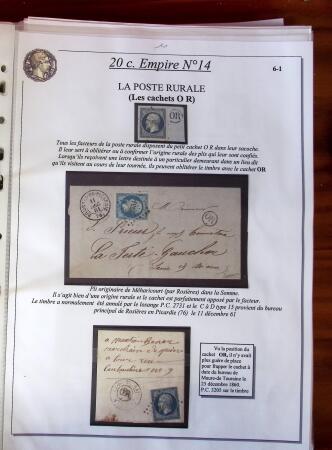 20 c. Empire N°14
6-1
LA POSTE RURALE
(Les cachets O R)
OR
Tous les facteurs de la poste rurale disposent du petit cachet O R dans leur sacoche.
Il leur sert à oblitérer ou à confirmer l'origine rurale des plis qui leur sont confiés.
Lorsqu'ils reçoivent une lettre destinée à un particulier demeurant dans un lieu dit
qu'ils visitent au cours de leur tournée, ils peuvent oblitérer le timbre avec le cachet OR
OR
La Ferté Gaucher
Seine et Marne
Pli originaire de Méharicourt (par Rosières) dans la Somme.
Il s'agit bien d'une origine rurale et le cachet est parfaitement apposé par le facteur.
Le timbre a normalement été annulé par le losange P.C. 2731 et le C à D type 15 provient du bureau
principal de Rosières en Picardie (76) le 11 décembre 61
a
Tours
OR
Vu la position du
cachet OR, il n'y avait
plus guère de place
pour frapper le cachet à
date du bureau de
25 décembre 1860,
P.C. 3205 sur le timbre